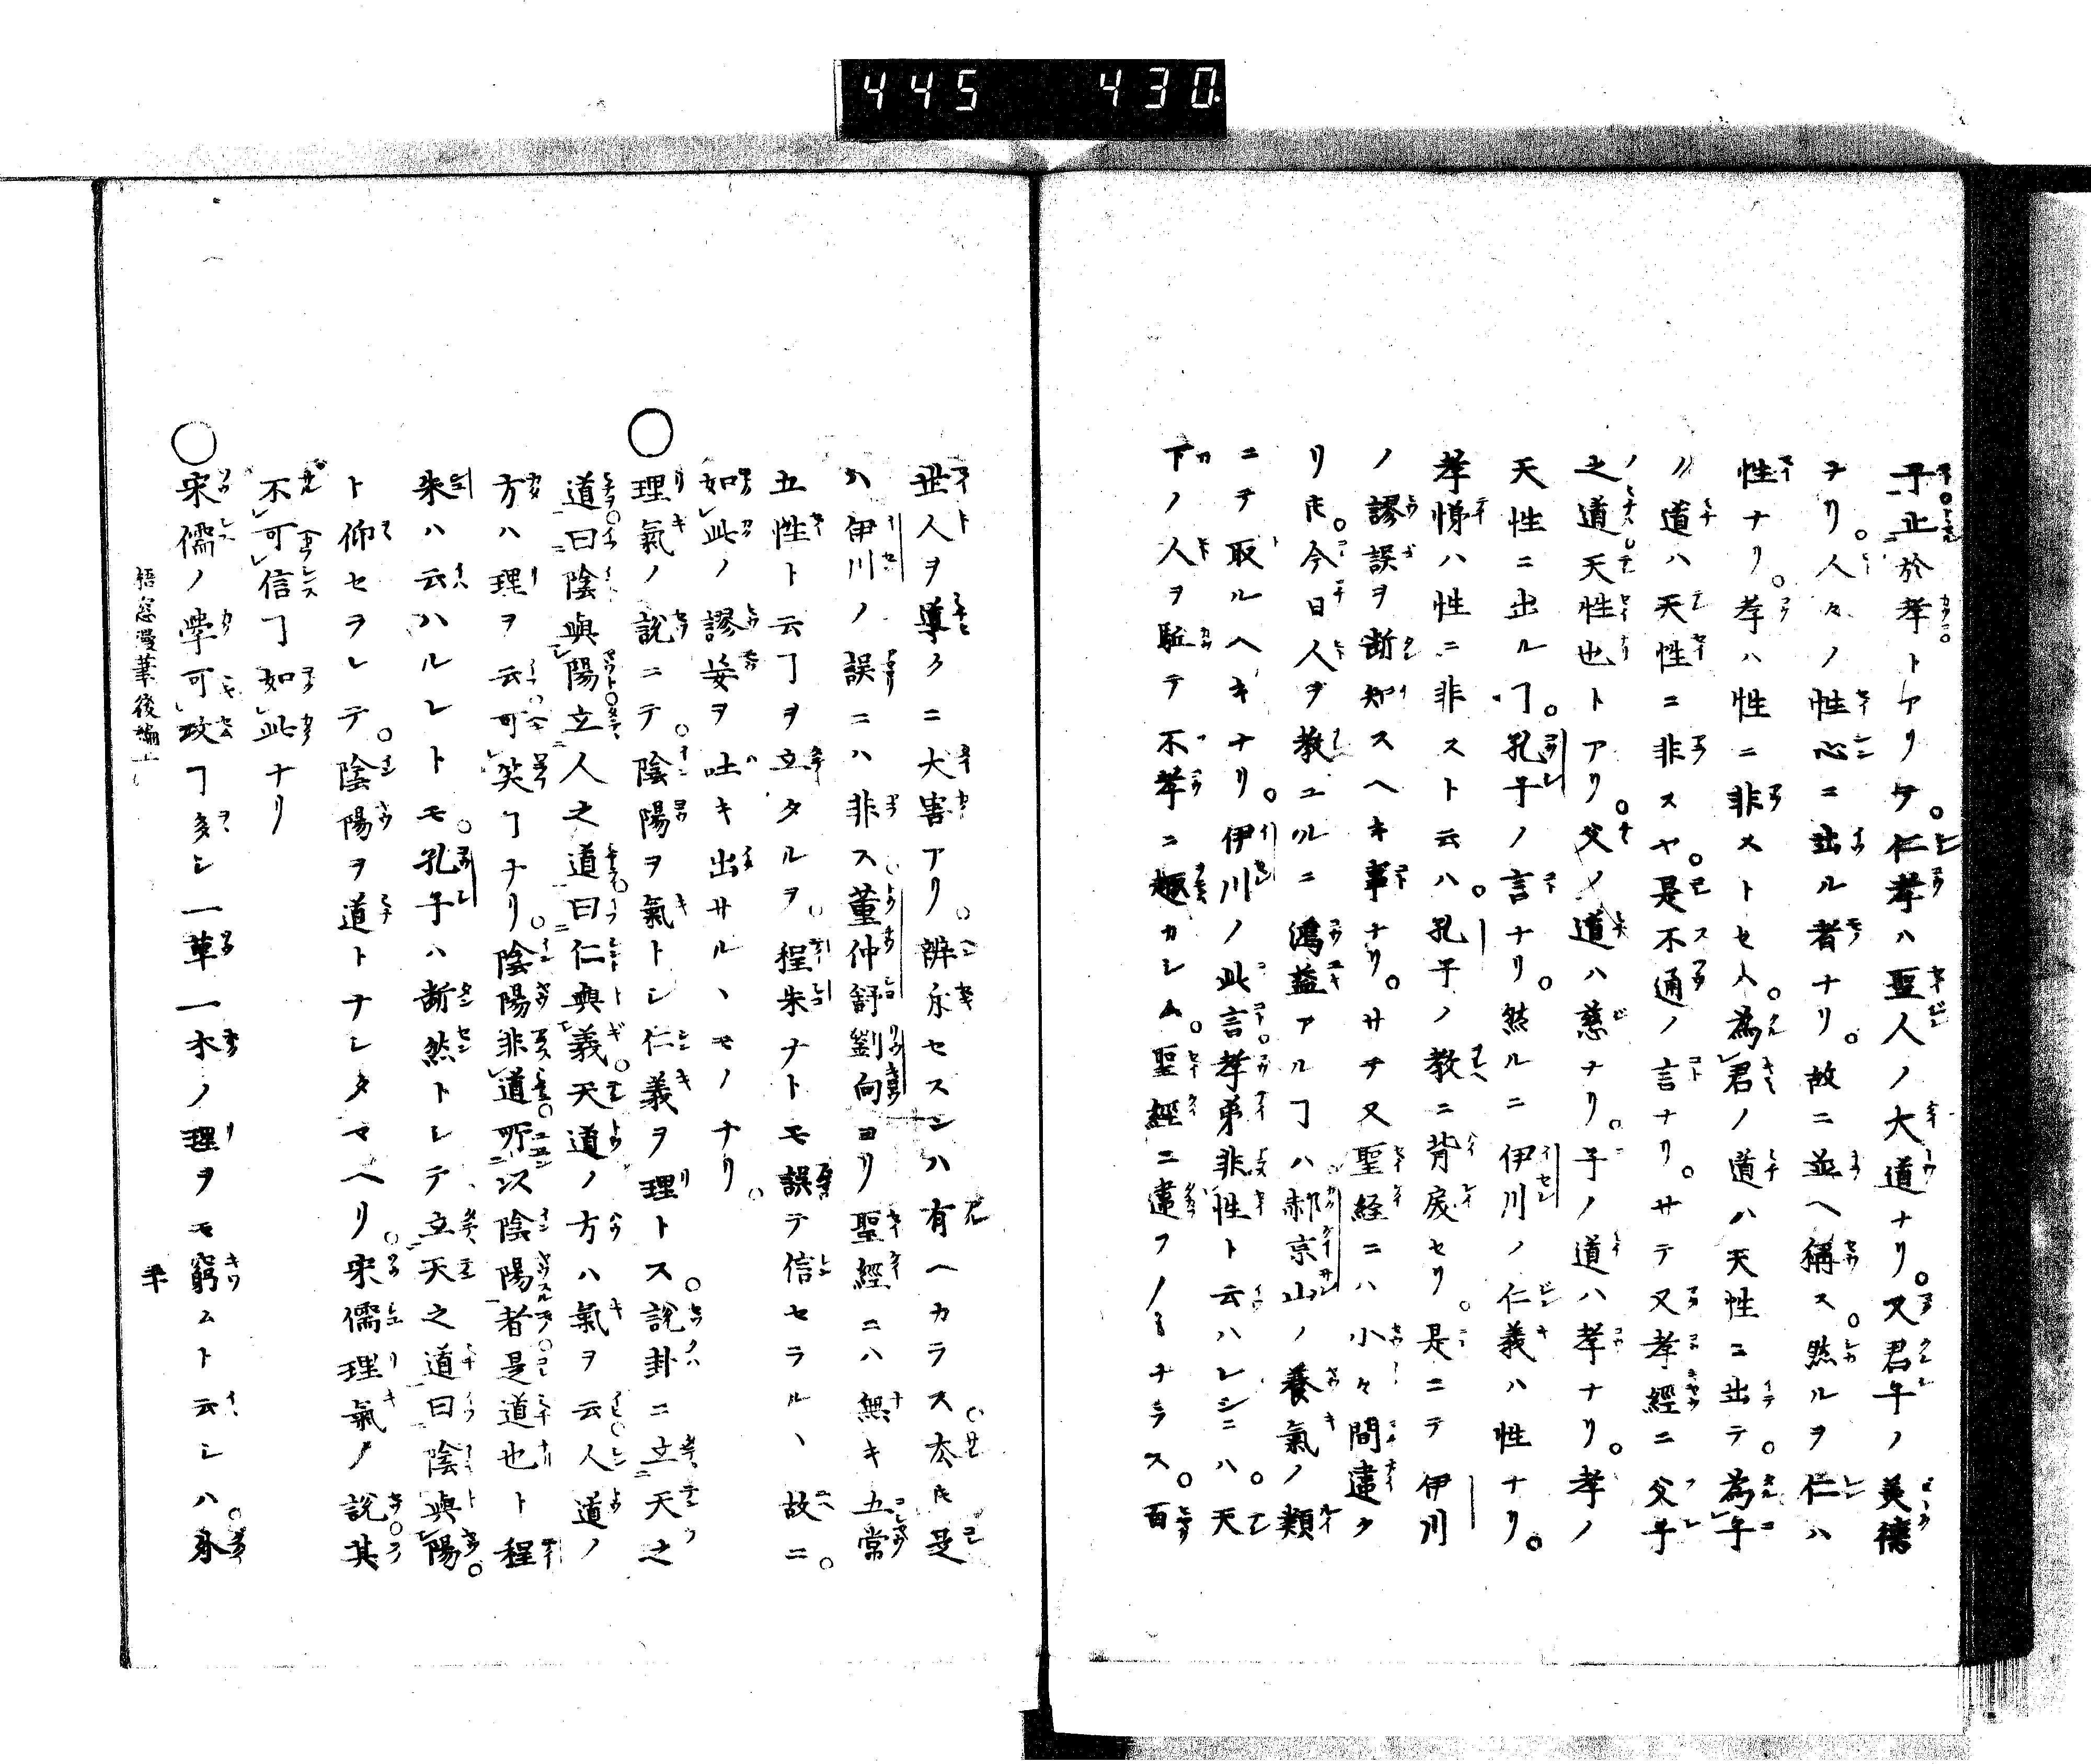 445 430.
子止於孝トアリテ。仁孝ハ聖人ノ大道ナリ。又君子ノ美德
ナリ。人々ノ性心ニ出ル者ナリ。故ニ並ヘ稱ス。然ルヲ仁ハ
性ナリ。孝ハ性ニ非ストセハ。為君ノ道ハ天性ニ出テ。為子
ノ道ハ天性ニ非スヤ。是不通ノ言ナリ。サテ又孝經ニ父子
之道天性也トアリ。父ノ道ハ慈ナリ。子ノ道ハ孝ナリ。孝ノ
天性ニ出ルヿ。孔子ノ言ナリ。然ルニ伊川ノ仁義ハ性ナリ。
孝悌ハ性ニ非スト云ハ。孔子ノ教ニ背戻セリ。是ニテ伊川
ノ謬誤ヲ断知スヘキ事ナリ。サテ又聖経ニハ小々間違タ
リ𪜈。今日人ヲ教ユルニ鴻益アルヿハ郝京山ノ養氣ノ類
ニテ取ルヘキナリ。伊川ノ此言孝弟非性ト云ハレシニハ。天
下ノ人ヲ駈テ不孝ニ趣カシム。聖經ニ違フノミナラス。百
世人ヲ導クニ大害アリ。辨斥セスンハ有ヘカラス。太𪜈是
ハ伊川ノ誤ニハ非ス董仲舒劉向ヨリ聖經ニハ無キ五常
五性ト云ヿヲ立タルヲ。程朱ナトモ誤テ信セラルヽ故ニ。
如此ノ謬妄ヲ吐キ出サルヽモノナリ。
◯理氣ノ說ニテ。陰陽ヲ氣トシ仁義ヲ理トス。說卦ニ立天之
道曰陰與陽立人之道曰仁與義天道ノ方ハ氣ヲ云人道ノ
方ハ理ヲ云可笑ヿナリ。陰陽非道所以陰陽者是道也ト程
朱ハ云ハルレトモ。孔子ハ断然トシテ立天之道曰陰與陽。
ト仰セヲレテ。陰陽ヲ道トナシタマヘリ。宋儒理氣ノ說其
不可信ヿ如此ナリ
◯宋儒ノ學可攻ヿ多シ一草一木ノ理ヲモ窮ムト云シハ。
梧窓漫筆後編上